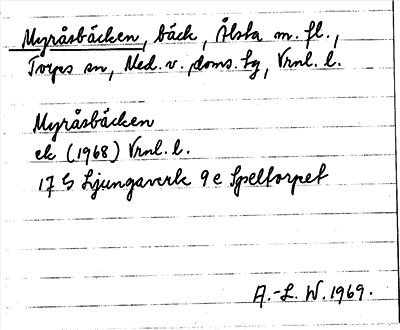 Myråsbäcken, bäck, Ålsta m. fl.,
Torps sn, Med. v. doms. tg, Vrnl. l.
Myråsbäcken
ek (1968) Vrnl. l.
17 G Ljungaverk 9 e Speltorpet
A.-L. W. 1969.